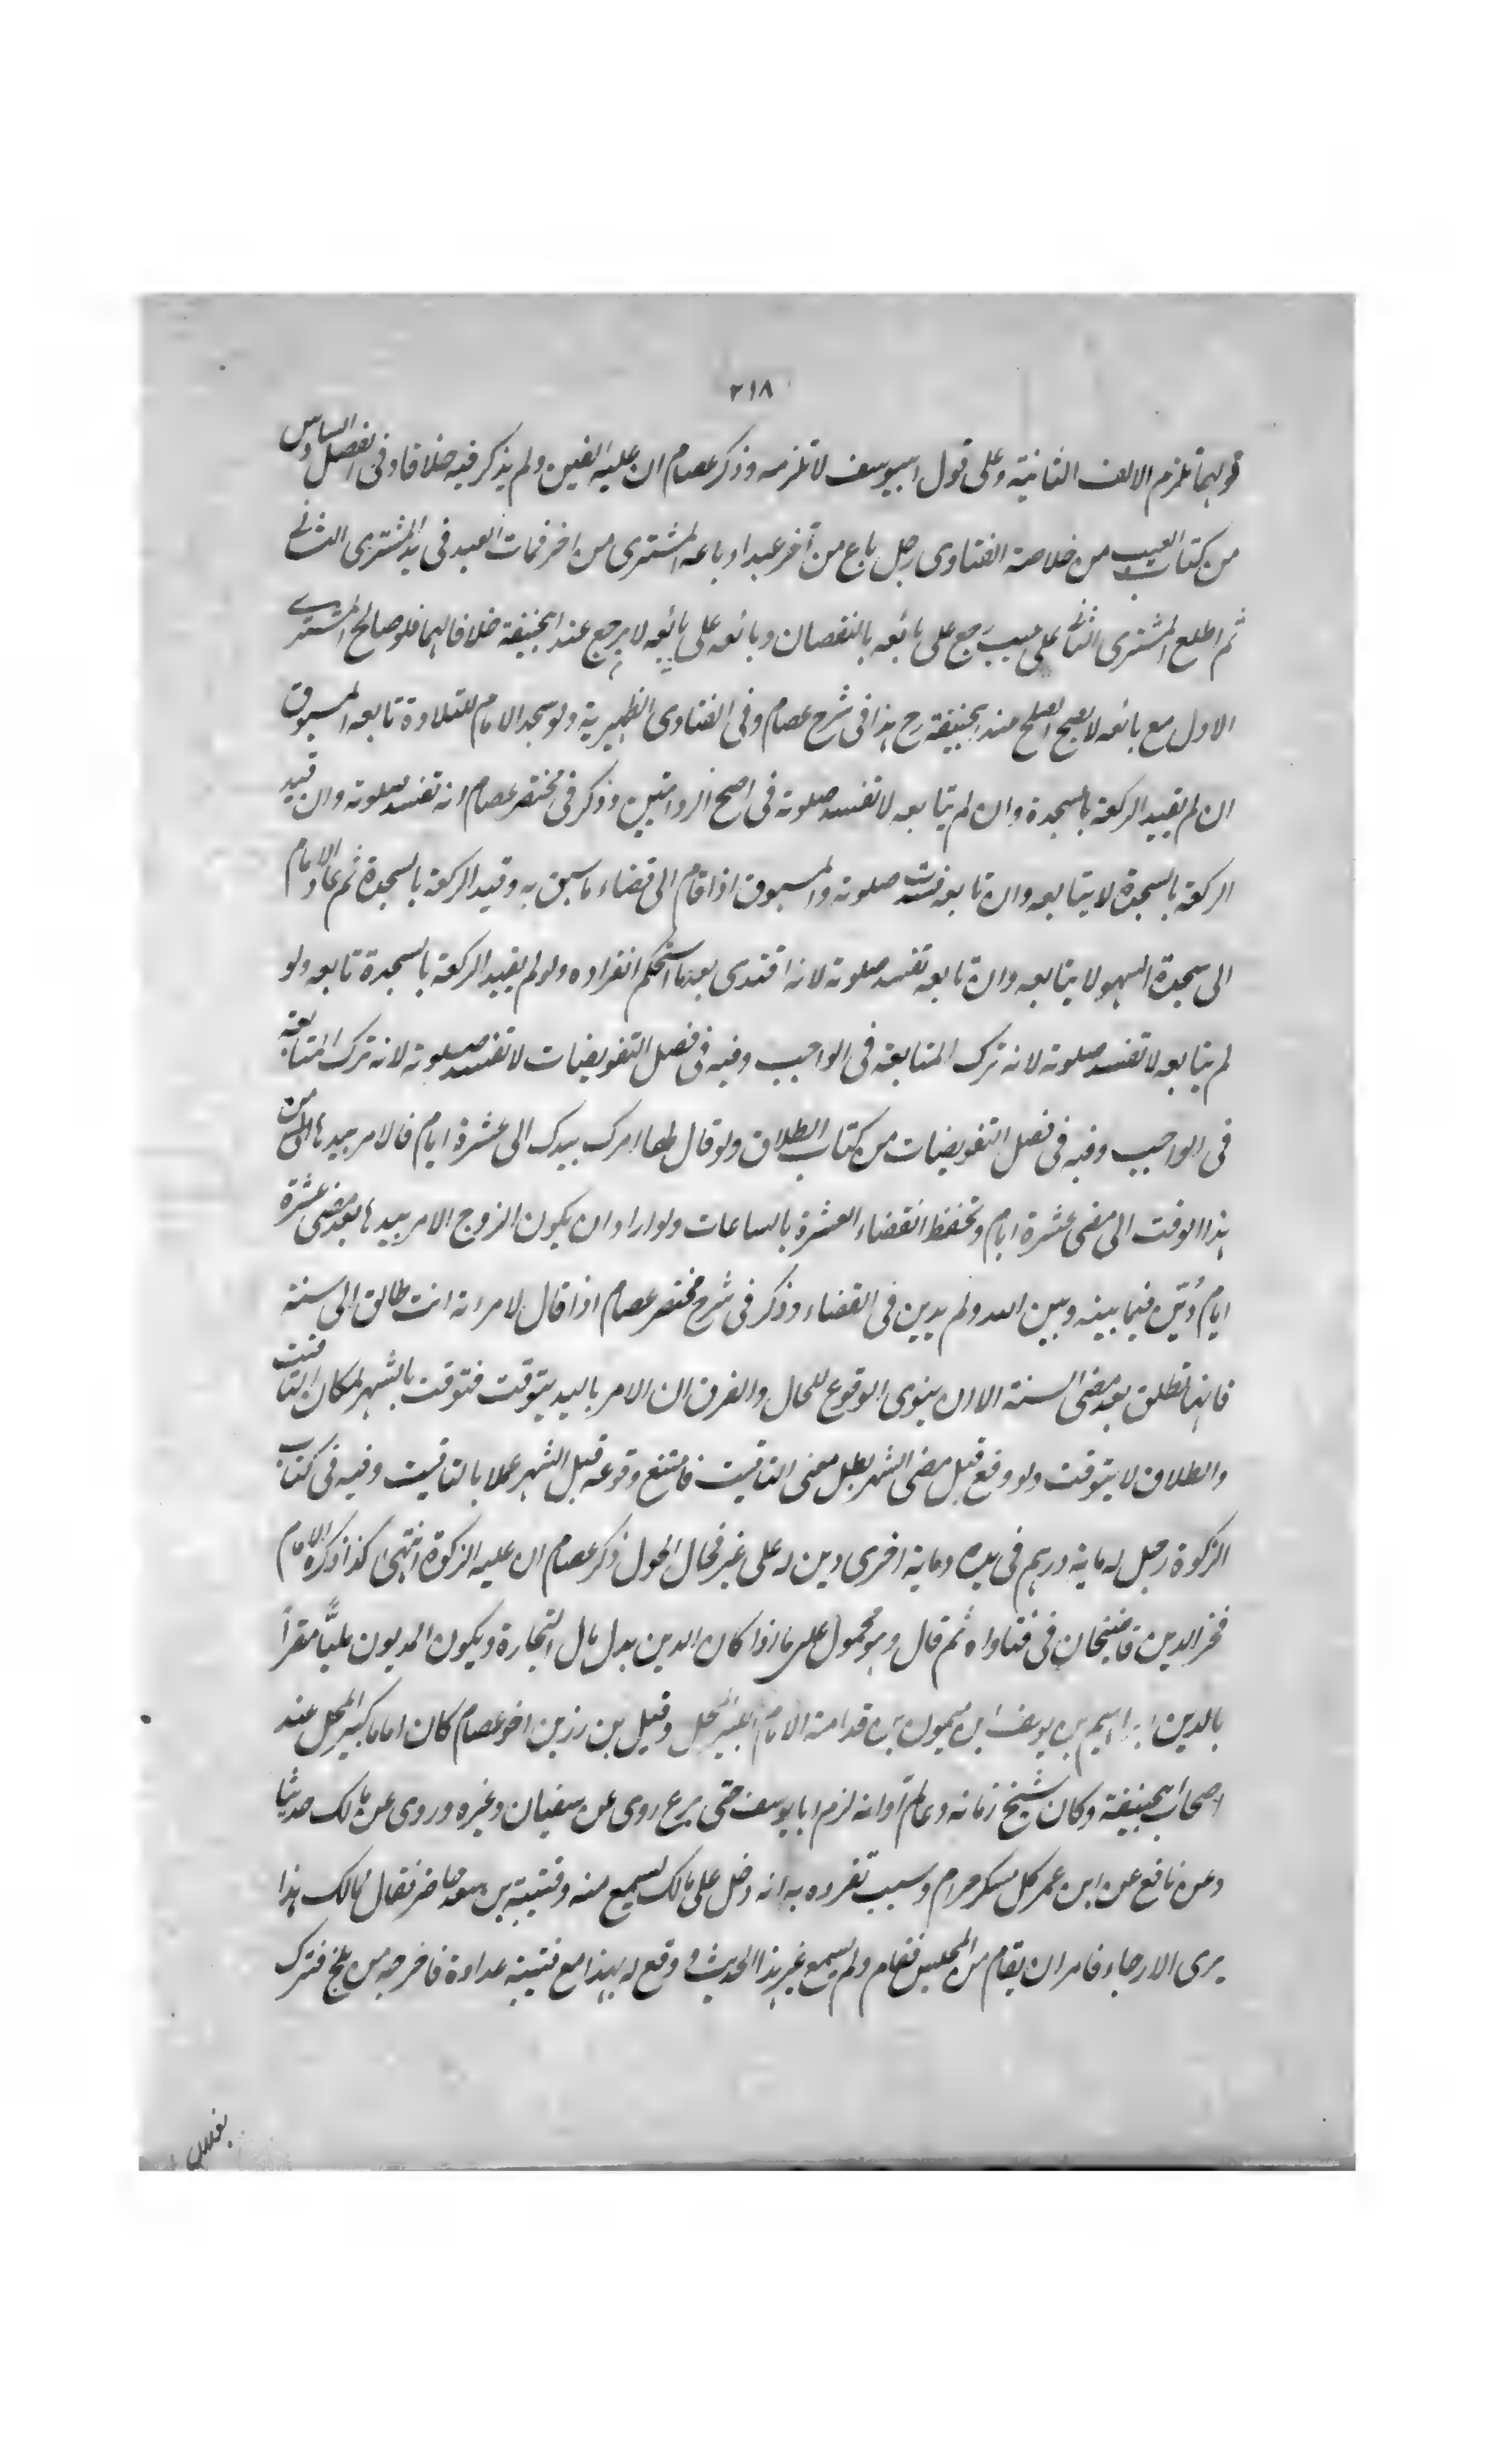 ٢١٨
قولهما تلزم الالف الثانية وعلى قول ابيوسف لا تلزمه وذكر عصام ان عليه الفين ولم يذكر فيه خلافا وفى الفصل السادس
من كتاب العيب من خلاصة الفتاوى رجل باع من آخر عبدا وباعه المشترى من اخر فمات العبد فى يد المشترى الثانى
ثم اطلع المشترى الثانى على عيب رجع على بائعه بالنقصان وبائعه على بائعه لا يرجع عند ابيحنيفة خلافا لهما فلو صالح المشترى
الاول مع بائعه لا يصح الصلح عند ابيحنيفة رح هذا فى شرح عصام وفى الفتاوى الظهيرية ولو سجد الامام للتلاوة تابعه المسبوق
ان لم يقيد الركعة بالسجدة وان لم يتابعه لا تفسد صلوته فى اصح الروايتين وذكر فى مختصر عصام انه تفسد صلوته وان قيد
الركعة بالسجدة لا يتابعه وان تابعه فسدت صلوته والمسبوق اذا قام الى قضاء ما سبق به وقيد الركعة بالسجدة ثم عاد الامام
الى سجدة السهو لا يتابعه وان تابعه تفسد صلوته لانه اقتدى بعدما استحكم انفراده ولو لم يقيد الركعة بالسجدة تابعه ولو
لم يتابعه لا تفسد صلوته لانه ترك المتابعة فى الواجب وفيه فى فصل التفويضات لا تفسد صلوته لانه ترك المتابعة
فى الواجب وفيه فى فصل التفويضات من كتاب الطلاق ولو قال لها امرك بيدك الى عشرة ايام فالامر بيدها من
هذا الوقت الى مضى عشرة ايام وتحفظ انقضاء العشرة بالساعات ولو اراد ان يكون الزوج الامر بيدها بعد مضى عشرة
ايام دُيّن فيما بينه وبين الله ولم يدين فى القضاء وذكر فى شرح مختصر عصام اذا قال لامرءته انت طالق الى سنة
فانها تطلق بعد مضى السنة الا ان ينوى الوقوع للحال والفرق ان الامر باليد يتوقت فتوقت بالشهر لمكان التاقيت
والطلاق لا يتوقت ولو وقع قبل مضى الشهر بطل معنى التاقيت فامتنع وقوعه قبل الشهر عملا بالتاقيت وفيه فى كتاب
الزكوة رجل له ماية درهم فى يده وماية اخرى دين له على غير فحال الحول ذكر عصام ان عليه الزكوة انتهى كذا ذكره الامام
فخر الدين قاضيخان فى فتاواه ثم قال وهو محمول على ما اذا كان الدين بدل مال التجارة ويكون المديون مليًّا مقراً
بالدين ابراهيم بن يوسف ابن ميمون بن قدامة الامام الكبير المحل وقيل بن رزين اخو عصام كان اماما كبير المحل عند
اصحاب ابيحنيفة وكان شيخ زمانه وعالم آوانه لزم ابا يوسف حتى برع روى عن سفيان وغيره وروى عن مالك حديثا
وعن نافع عن ابن عمر كل مسكر حرام وسبب تفرده به انه دخل على مالك ليسمع منه وقتيبة بن سعد حاضر فقال لمالك هذا
يرى الارجاء فامر ان يقام من المجلس فقام ولم يسمع غير هذا الحديث ووقع له بهذا مع قتيبة عداوة فاخرجه من بلخ فنزل